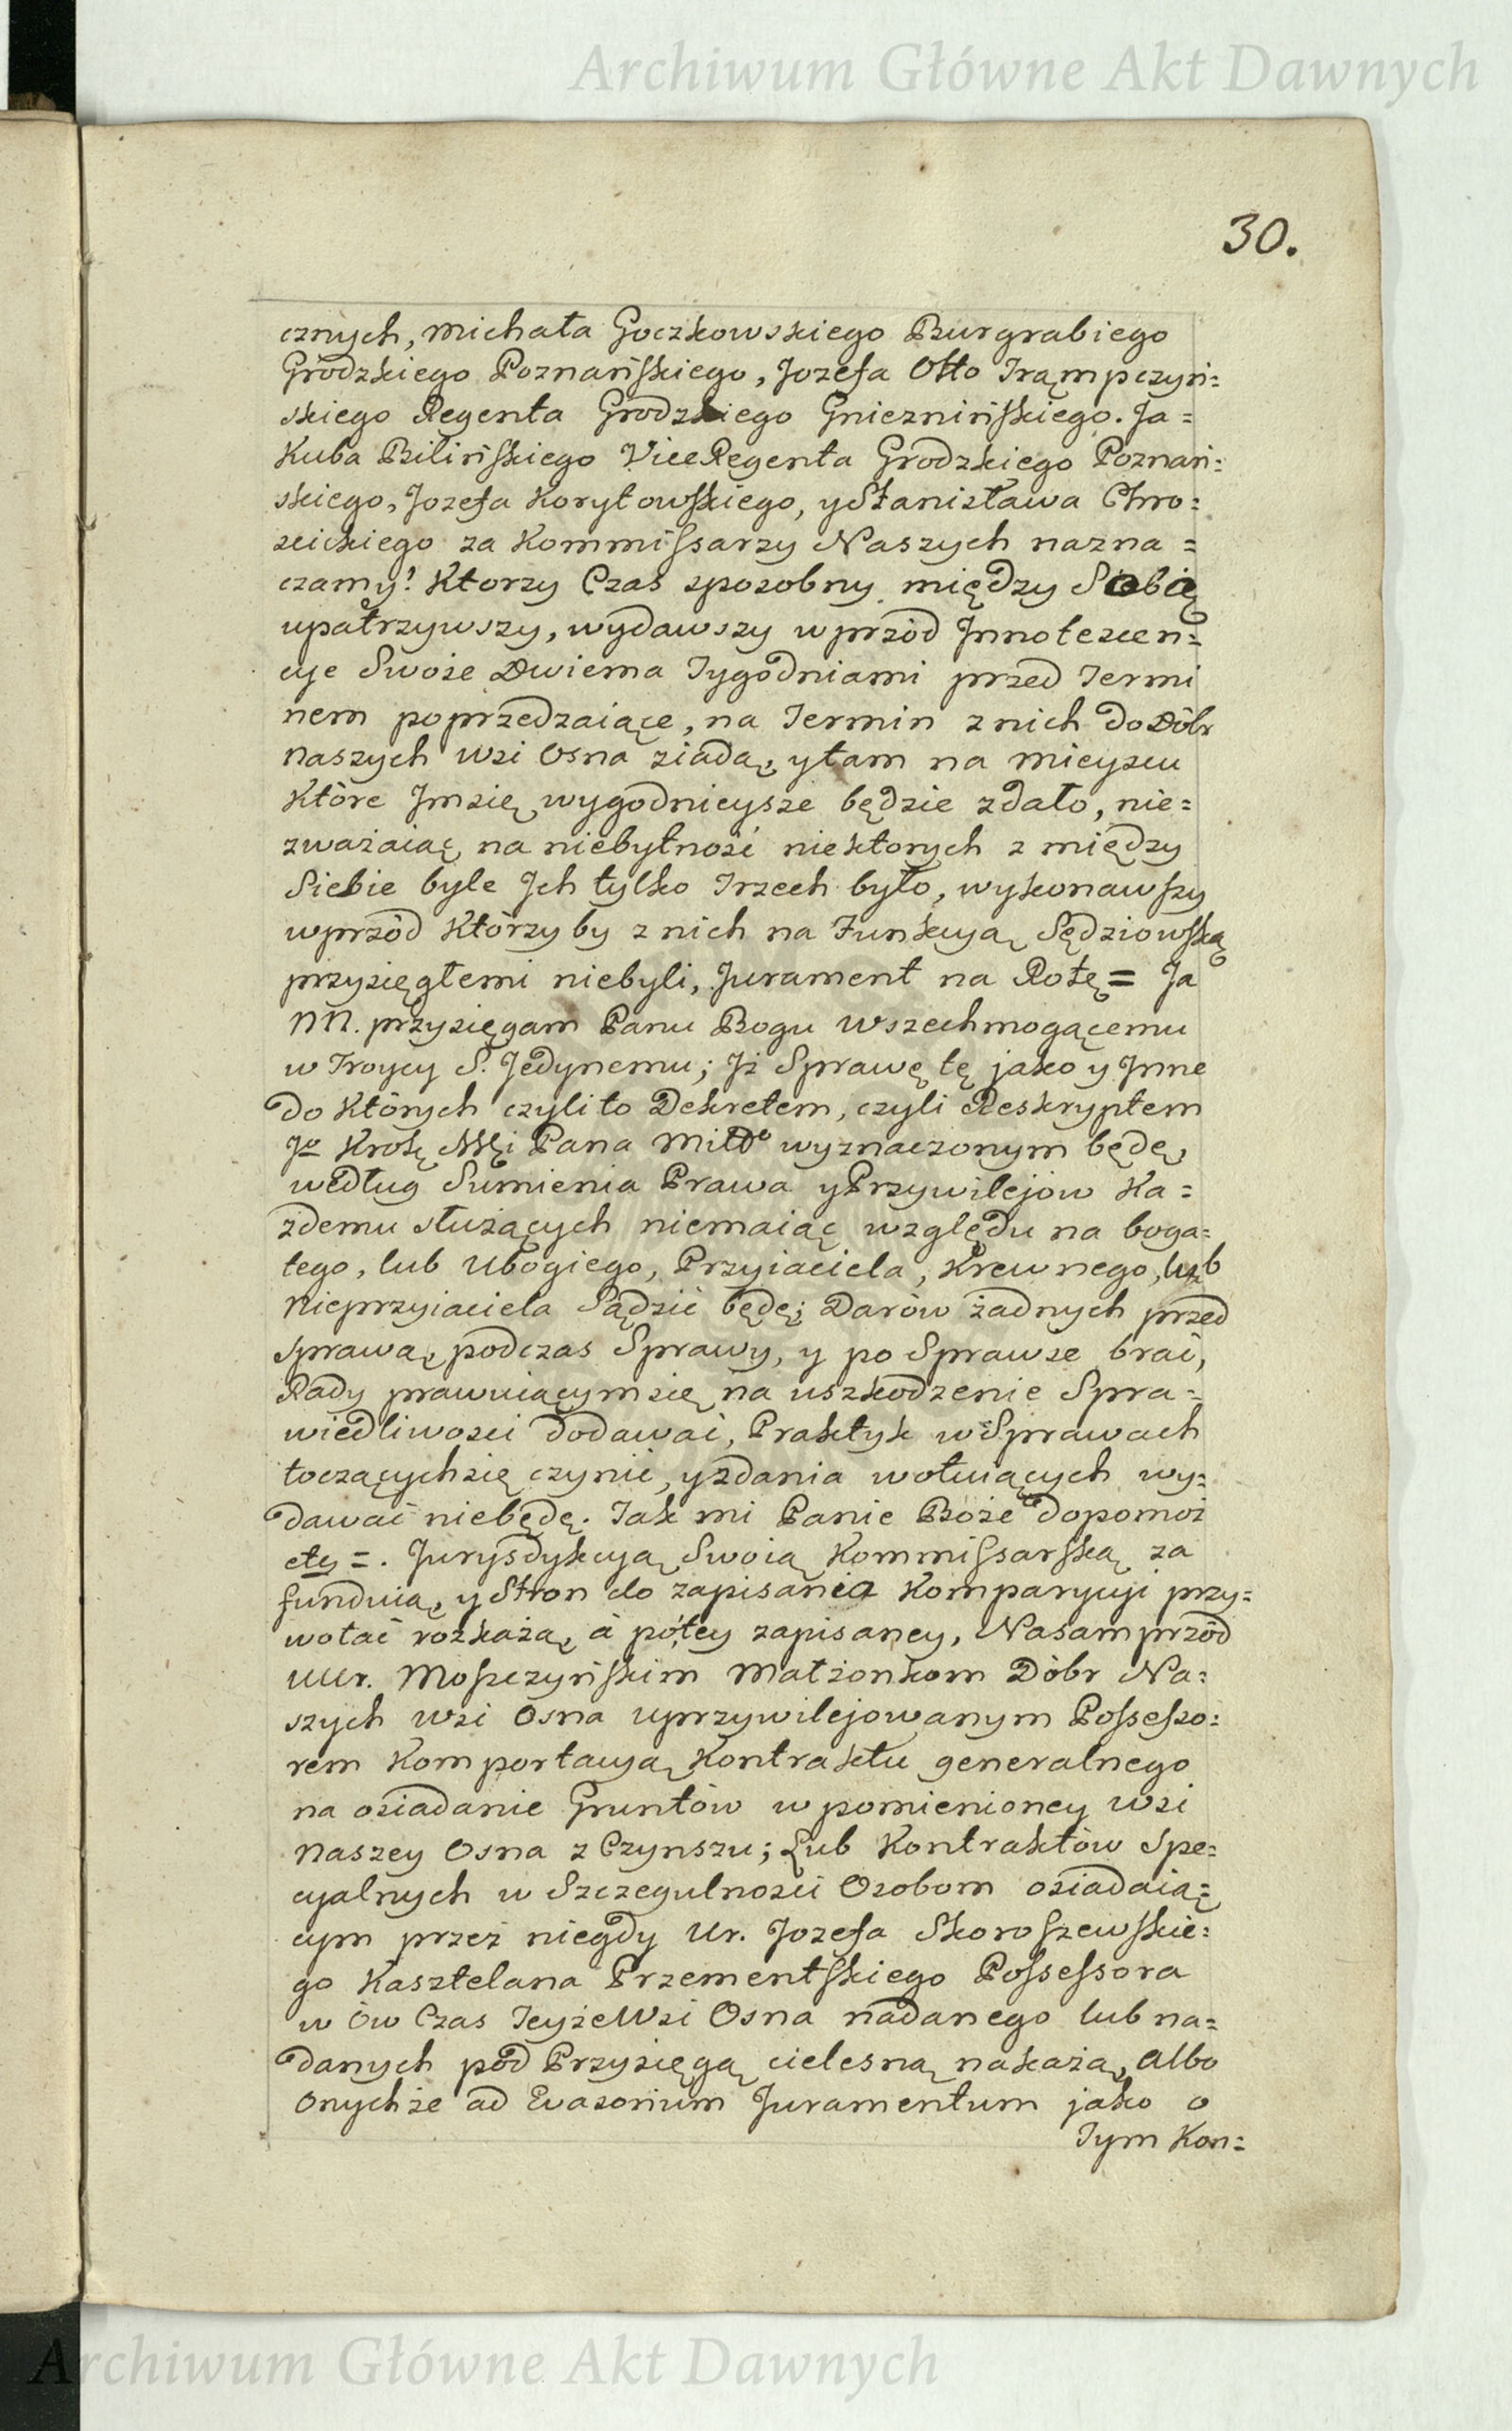 Archiwum Główne Akt Dawnych
30.
cznych, Michała Goczkowskiego Burgrabiego
Grodzkiego Poznańskiego, Jozefa Otto Trąmpczyń=
skiego Regenta Grodzkiego Gnieznińskiego. Ja=
kuba Bilińskiego ViceRegenta Grodzkiego Poznań=
skiego, Jozefa Korytowskiego, y Stanisława Chro=
scickiego za Kommissarzy Naszych nazna=
czamy! Ktorzy Czas sposobny między Sobą
upatrzywszy, wydawszy wprzód Jnnotescen=
cye Swoie Dwiema Tygodniami przed Termi
nem poprzedzaiące, na Termin z nich do Dóbr
Naszych wsi Osna ziadą, y tam na Mieyscu
Które Jm się wygodnieysze będzie zdało, nie=
zważaiąc na niebytność niektorych z między
Siebie byle Jch tylko Trzech było, wykonawszy
wprzód Którzy by z nich na Funkcyą Sędziowską
przysięgłemi niebyli, Jurament na Rotę= Ja
NN. przysięgam Panu Bogu Wszechmogącemu
w Troycy S. Jedynemu; Jż Sprawę tę jako y Jnne
do Których czyli to Dekretem, czyli Reskryptem
Jo Krolę Mći Pana Miłgo wyznaczonym będę,
według Sumienia Prawa y Przywilejow Ka=
żdemu służących niemaiąc względu na boga=
tego, lub Ubogiego, Przyiaciela, Krewnego, lub
Nieprzyiaciela Sądzić będę; Darów żadnych przed
sprawą, podczas Sprawy, y po Sprawie brać,
Rady prawuiącym się na uszkodzenie Spra=
wiedliwości dodawać, Praktyk w Sprawach
toczących się czynić, y zdania wotuiących wy=
dawać niebędę. Tak mi Panie Boże dopomoż
etc =. Jurysdykcyą Swoią Kommissarską za
funduią, y Stron do zapisania Komparycyi przy=
wołać rozkażą, à po tey zapisaney, Nasamprzód
UUr. Moszczyńskim Małżonkom Dóbr Na=
szych wsi Osna uprzywilejowanym Possesso=
rem Komportacyą Kontraktu generalnego
na osiadanie Gruntów w pomienioney wsi
Naszey Osna z Czynszu; Lub Kontraktów Spe=
cyalnych w Szczegulności Osobom osiadaią=
cym przez niegdy Ur. Jozefa Skoroszewskie=
go Kasztelana Przementskiego Possessora
w ów Czas Teyże Wsi Osna nadanego lub na=
danych pod Przysięgą cielesną nakażą, albo
Onychże ad Evasorium Juramentum jako o
Tym Kon=
Archiwum Główne Akt Dawnych